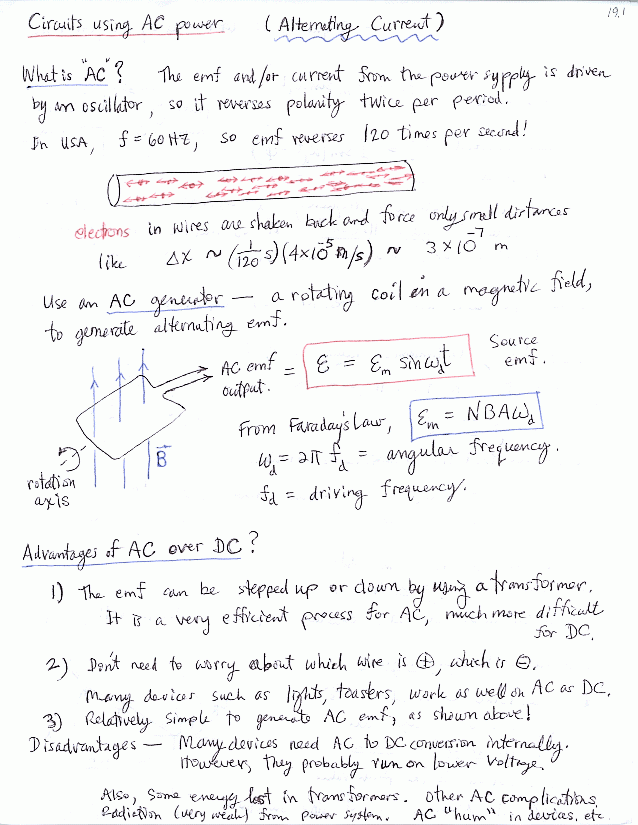 19.1
Circuits using AC power (Alternating Current)
What is "AC"? The emf and/or current from the power sypply is driven
by an oscillator, so it reverses polarity twice per period.
In USA, f = 60 Hz, so emf reverses 120 times per second!
electrons in wires are shaken back and force only small distances
like Δx ~ (1/120 s)(4×10⁻⁵ m/s) ~ 3×10⁻⁷ m
Use an AC generator — a rotating coil in a magnetic field,
to generate alternating emf.
AC emf output. = ℰ = ℰm sin ωdt Source emf.
From Faraday's Law, ℰm = NBAωd
ωd = 2π fd = angular frequency.
fd = driving frequency.
B⃗
rotation
axis
Advantages of AC over DC?
1) The emf can be stepped up or down by using a transformer.
It is a very efficient process for AC, much more difficult
for DC.
2) Don't need to worry about which wire is ⊕, which is ⊖.
Many devices such as lights, toasters, work as well on AC as DC.
3) Relatively simple to generate AC emf, as shown above!
Disadvantages — Many devices need AC to DC conversion internally.
However, they probably run on lower voltage.
Also, some energy lost in transformers. Other AC complications,
Radiation (very weak) from power system. AC "hum" in devices, etc.